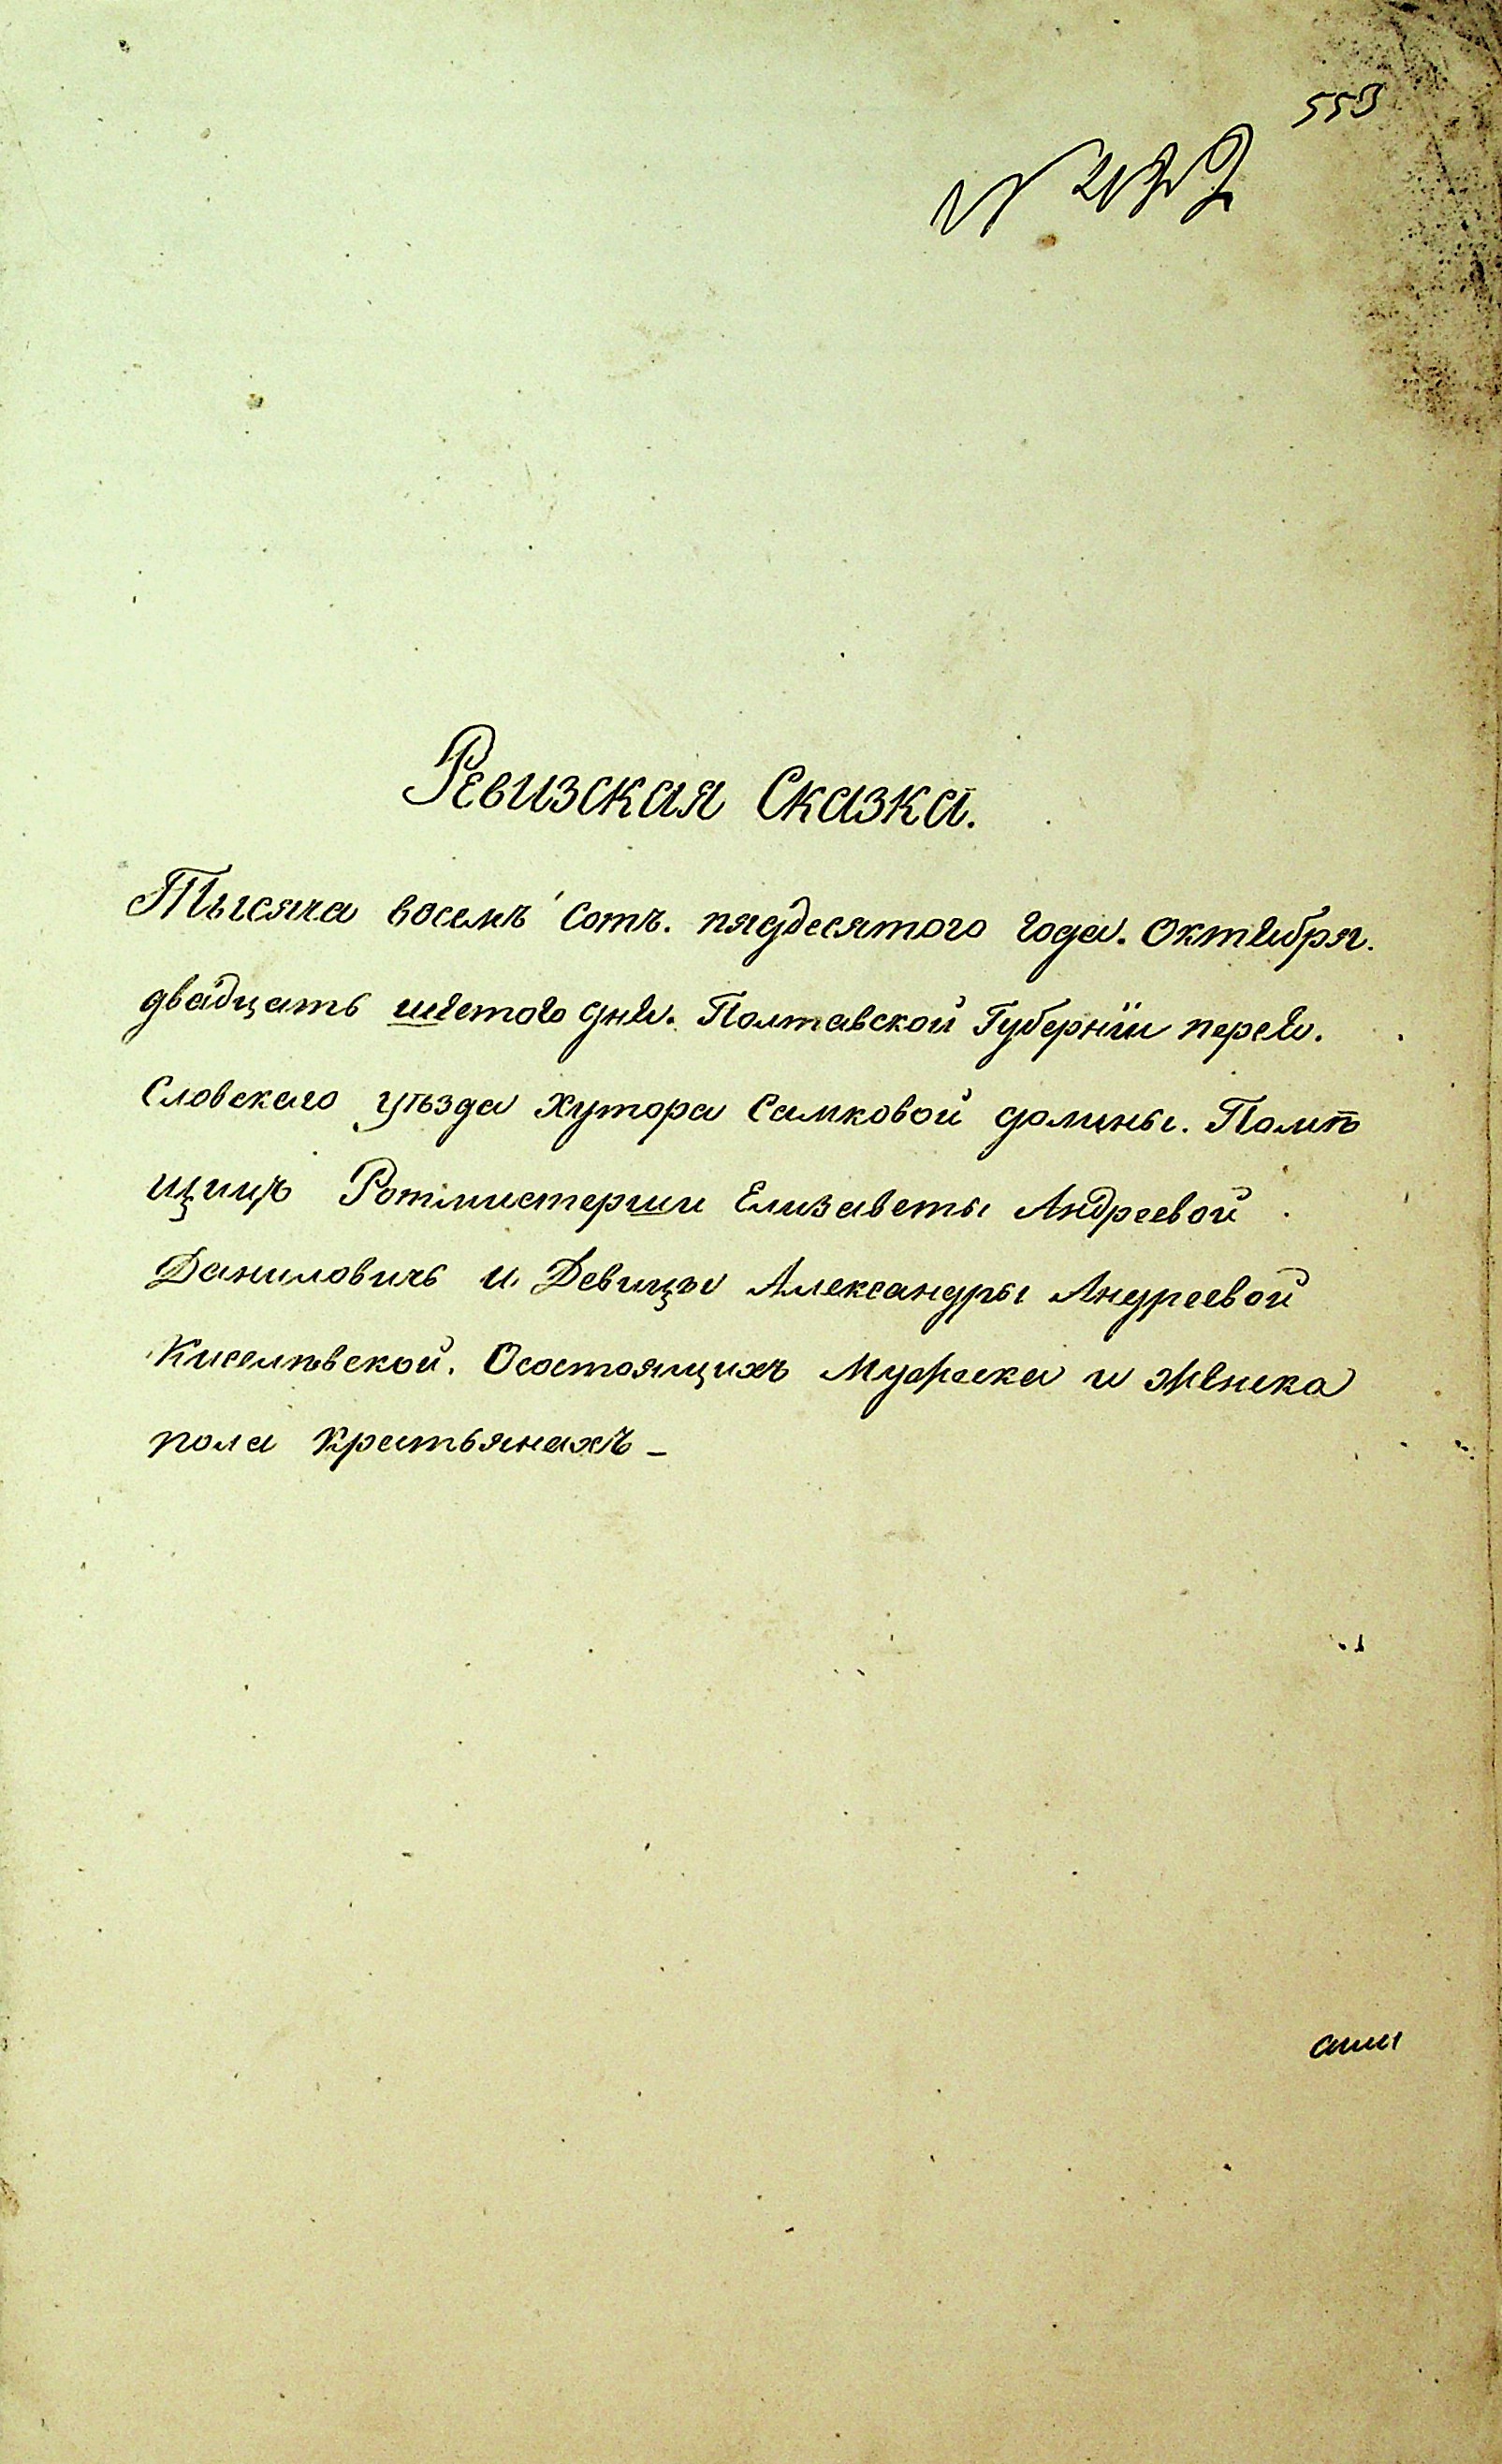 553
Ревизская Сказка.
Тысяча восемъ сотъ. пядесятого года. Октября.
двадцать шестого дня. Полтавской Губернїи перея.
Словскаго уѣзда Хутора Самковой долины. Помѣ
щицъ Ротмистерши Елизаветы Андреевой
Даниловичь и Девицы Александры Андреевой
Киселѣвской. Осостоящихъ Мужеска и женска
пола Крестьянахъ –